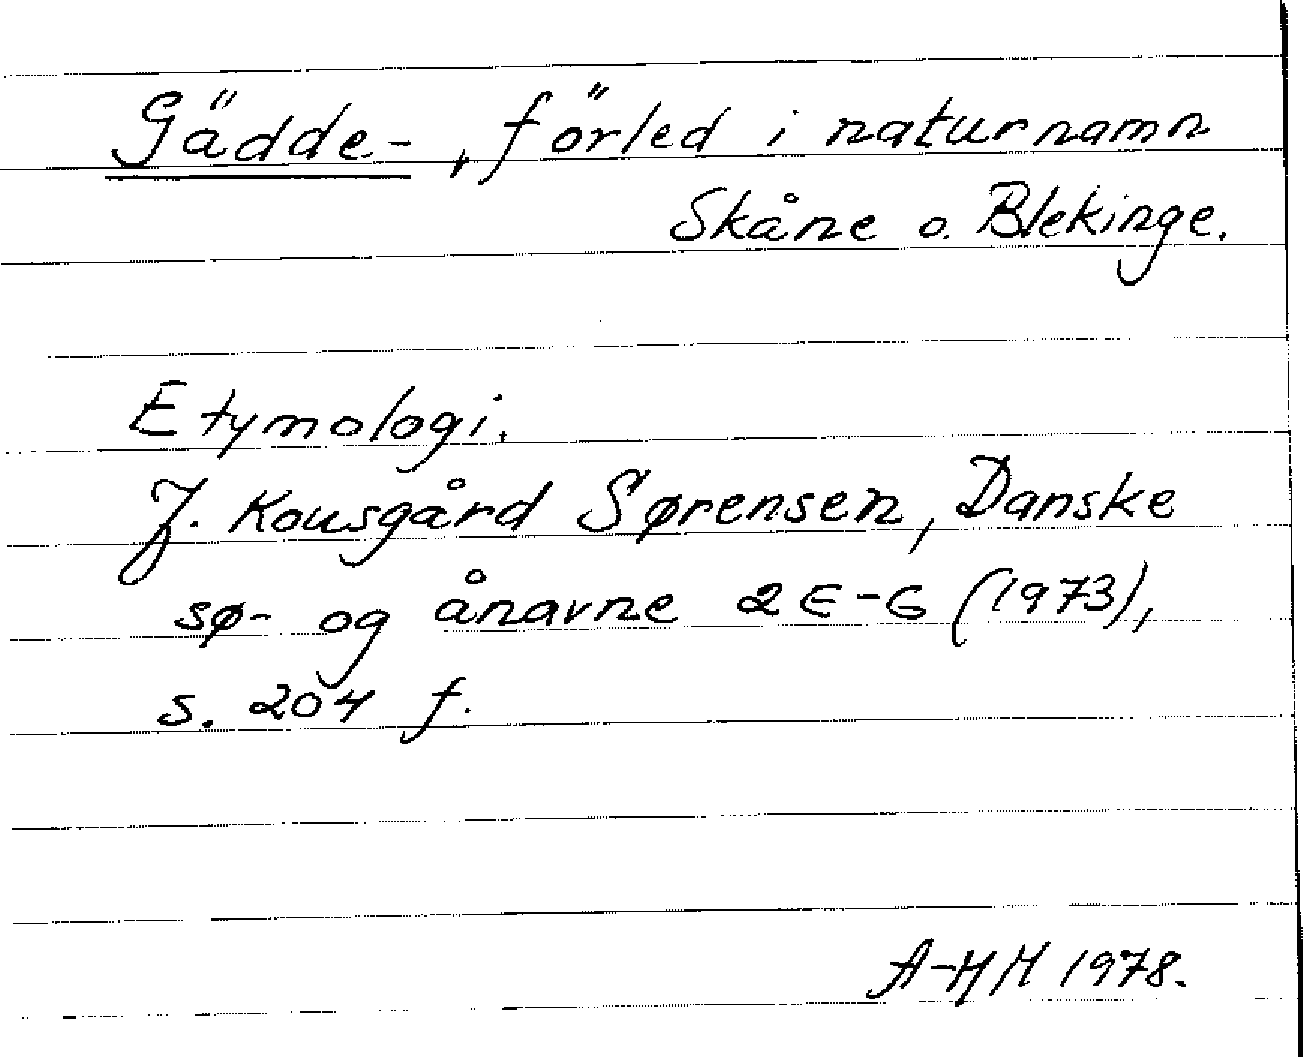 Gädde-, förled i naturnamn
Skåne o. Blekinge.
Etymologi.
J. Kousgård Sørensen, Danske
sø- og ånavne 2 E-G (1973),
s. 204 f.
A-HH 1978.